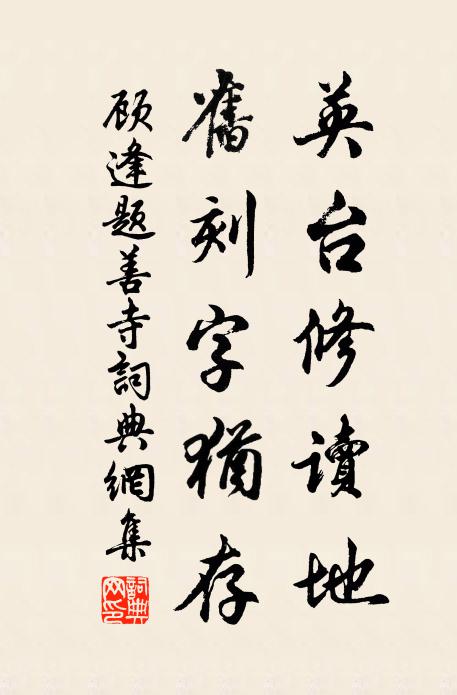 英台修讀地
舊刻字猶存
顾逢题善寺詞典網集
詞典
网印